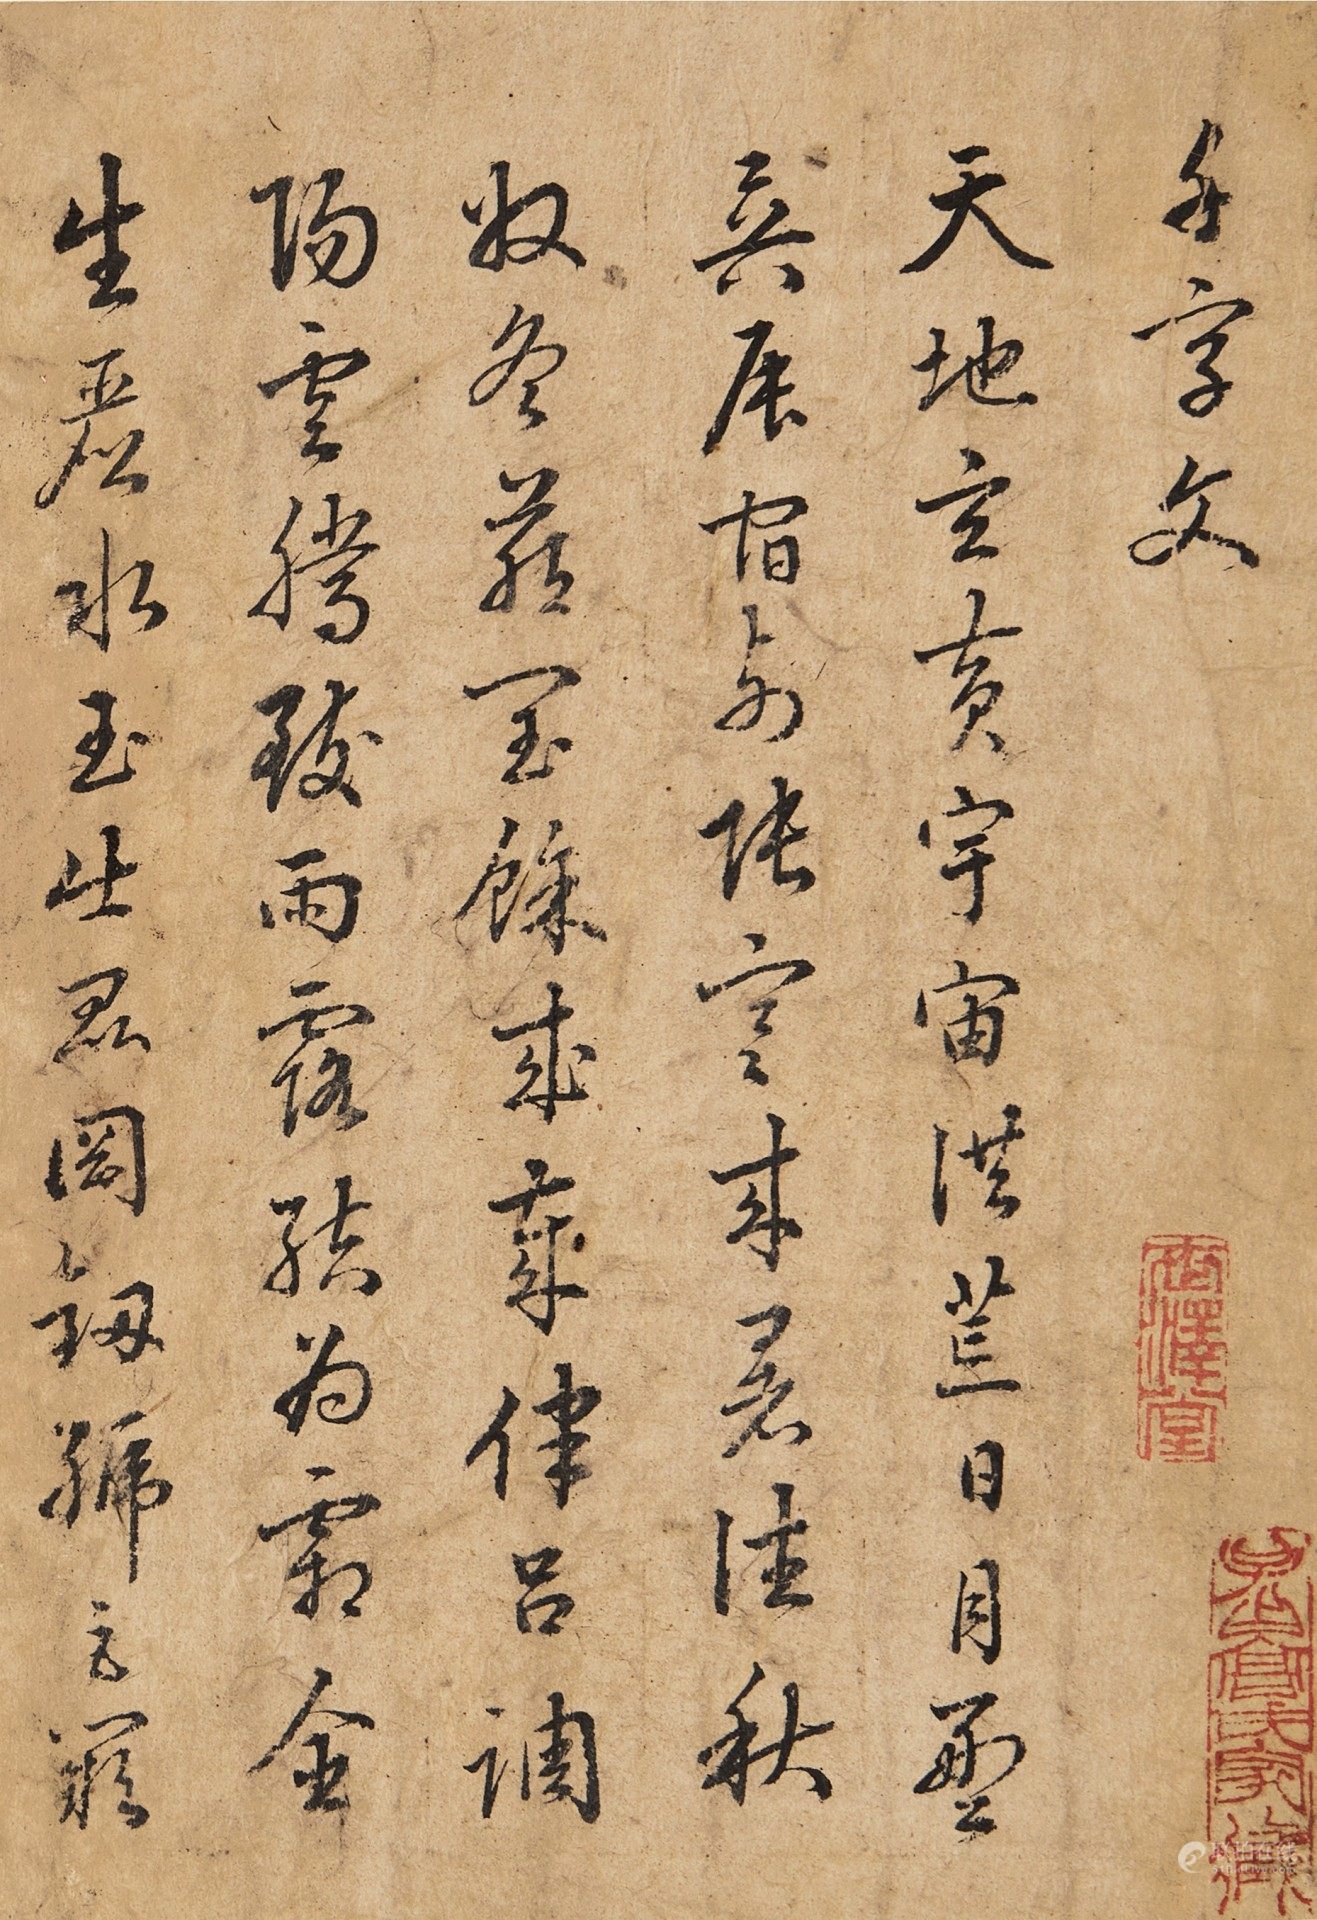 千字文
天地玄黄宇宙洪荒日月盈
昃辰宿列張寒來暑往秋
收冬藏閏餘成歲律吕調
陽雲騰致雨露結為霜金
生麗水玉出崑岡劒號巨闕
澤堂
高氏家藏